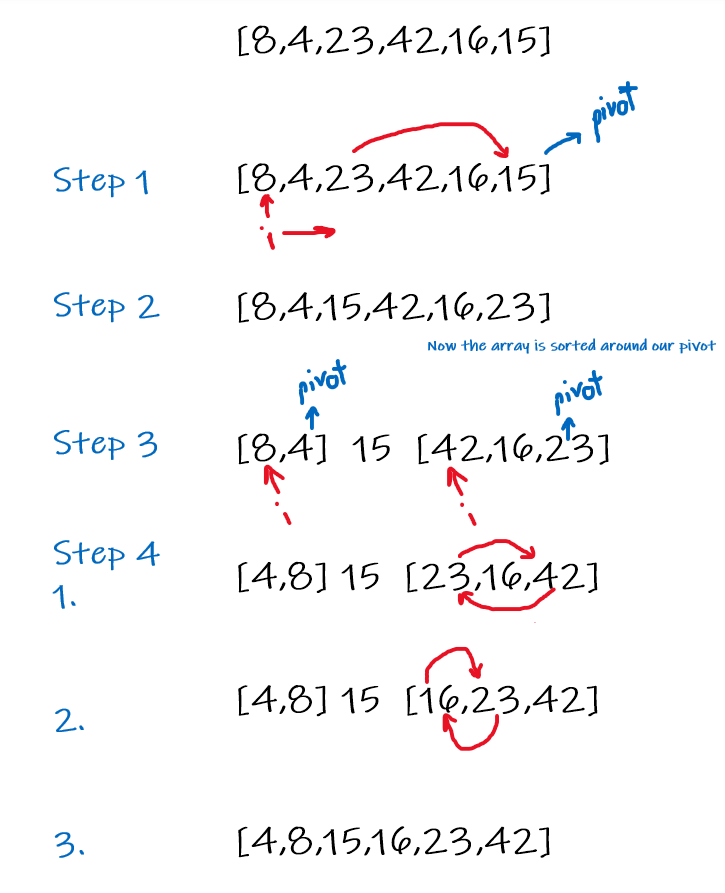 [8,4,23,42,16,15]
pivot
Step 1 [8,4,23,42,16,15]
i
Step 2 [8,4,15,42,16,23]
Now the array is sorted around our pivot
pivot pivot
Step 3 [8,4] 15 [42,16,23]
i i
Step 4
1. [4,8] 15 [23,16,42]
2. [4,8] 15 [16,23,42]
3. [4,8,15,16,23,42]